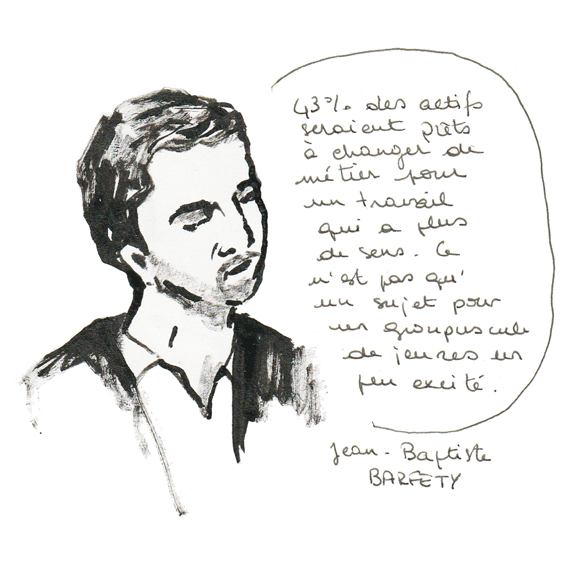 43% des actifs
seraient prêts
à changer de
métier pour
un travail
qui a plus
de sens. Ce
n'est pas qu'
un sujet pour
un groupuscule
de jeunes un
peu excité.
Jean-Baptiste
BARFETY